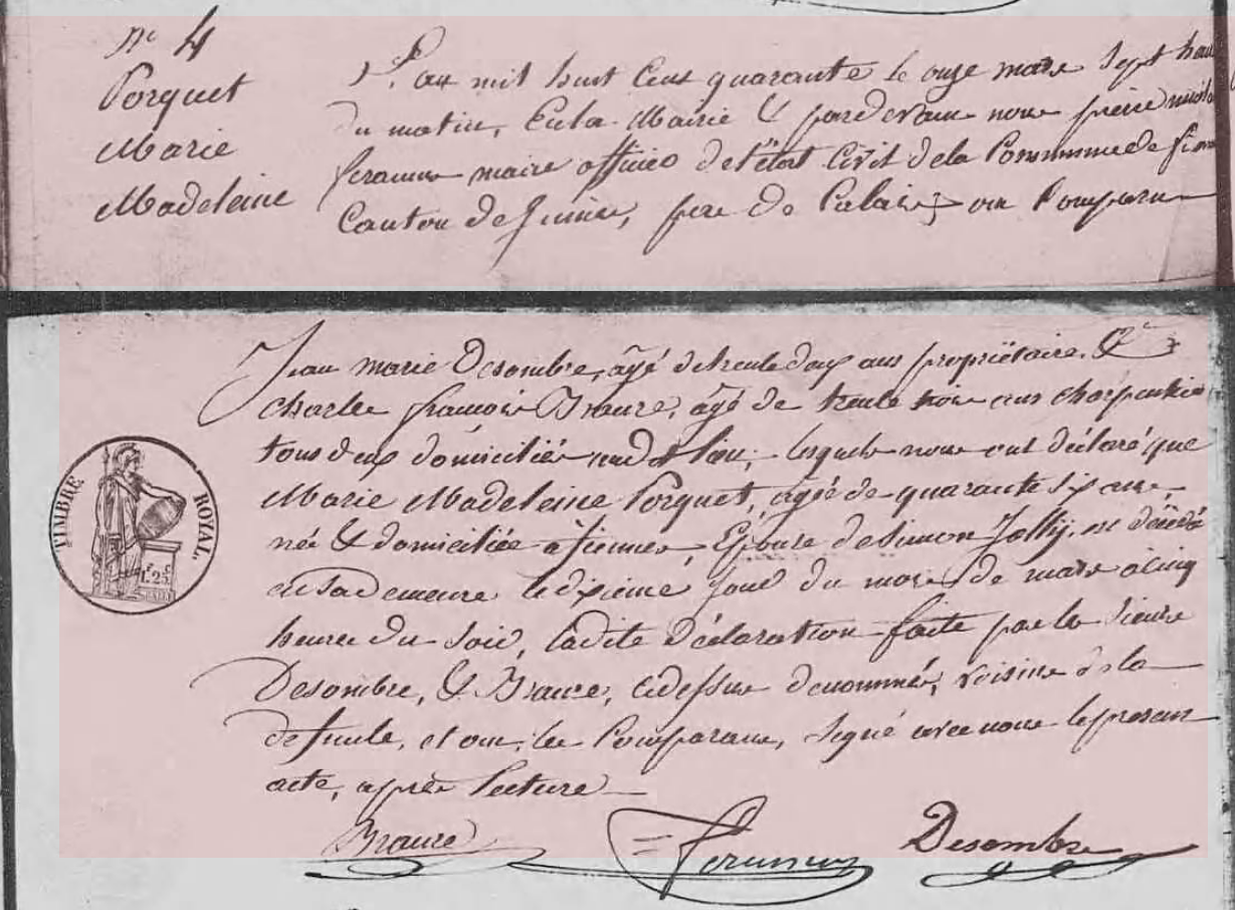 N° 4
Porquet
Marie
Madeleine
L'an mil huit cent quarante le onze mars sept heures
du matin, En la Mairie & pardevant nous pierre nicolas
maire officier de l'état Civil de la Commune de fiennes
Canton de Guines, pas de Calais, ont Comparu
Jean marie Desombre, agé de trente deux ans propriétaire, &
Charles françois Braure, agé de trente trois ans charpentier
tous deux domiciliés audit lieu, lesquels nous ont déclaré que
Marie Madeleine Porquet, agée de quarante six ans,
née & domiciliée à fiennes, Epouse de Simon Jolly, est décédé
en sa demeure le dixième jour du mois de mars à cinq
heures du soir, ladite déclaration faite par les sieurs
Desombre, & Braure, ci dessus dénommés, voisins de la
défunte, et ont, les Comparans, signé avec nous le present
acte, après lecture
Braure
Desombre
TIMBRE ROYAL.